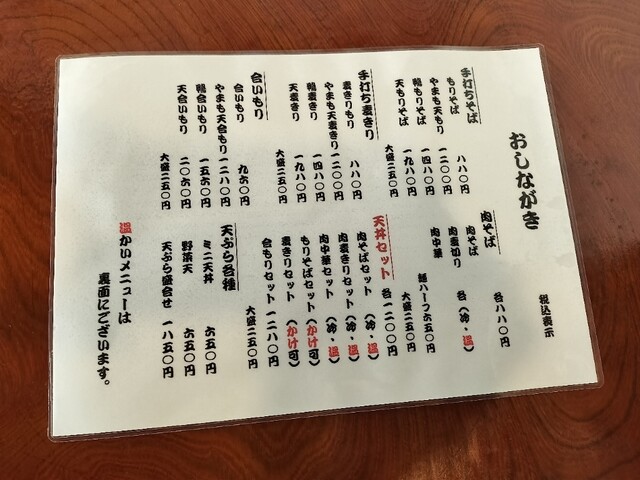 おしながき
税込表示
手打ちそば
もりそば 八八〇円
やまも天もり 一二〇〇円
鴨もりそば 一四八〇円
天もりそば 一九八〇円
大盛二五〇円
手打ち麦きり
麦きりもり 八八〇円
やまも天麦きり 一二〇〇円
鴨麦きり 一四八〇円
天麦きり 一九八〇円
大盛二五〇円
合いもり
合いもり 九六〇円
やまも天合もり 一二八〇円
鴨合いもり 一五六〇円
天合いもり 二〇六〇円
大盛二五〇円
肉そば 各八八〇円
肉そば 各(冷・温)
肉麦切り
肉中華
麺ハーフ六五〇円
大盛二五〇円
天丼セット 各一二〇〇円
肉そばセット (冷・温)
肉麦きりセット (冷・温)
肉中華セット (冷・温)
もりそばセット (かけ可)
麦きりセット (かけ可)
合もりセット 一二八〇円
大盛二五〇円
天ぷら各種
ミニ天丼 六五〇円
野菜天 六五〇円
天ぷら盛合せ 一八五〇円
温かいメニューは
裏面にございます。